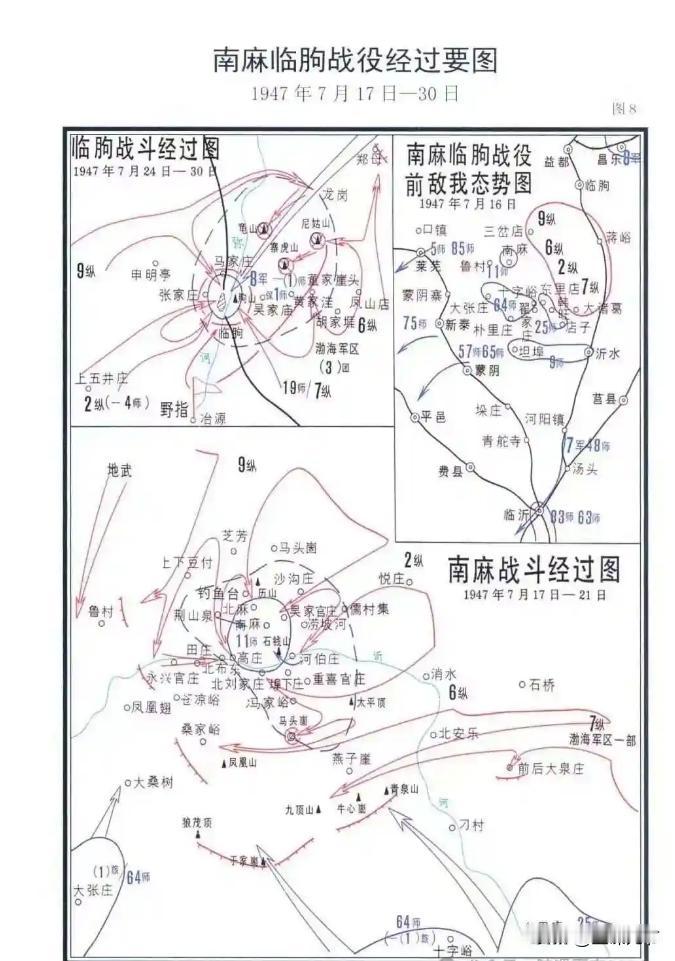 南麻临朐战役经过要图
1947年7月17日—30日
图8
临朐战斗经过图
1947年7月24日—30日
郑母
龙岗
龟山
尼姑山
寨虎山
弥
马家庄
9纵
申明亭
8军
(1)师
董家崖头
张家庄
朐山
保1师
黄家洼
凤山店
吴家庙
胡家埋
6纵
临朐
渤海军区
(3)团
河
19师/7纵
上五井庄
2纵(一4师)
野指
冶源
南麻临朐战役
前敌我态势图
1947年7月16日
益都
昌乐
8军
临朐
9纵
口镇
三岔店
蒋峪
5师 85师
南麻
6纵
莱芜
鲁村
11师
2纵
7纵
蒙阴寨
十字峪
东里店
大张庄
64师
大诸葛
75师
新泰
朴里庄
25师
店子
57师65师
坦埠
9师
沂水
蒙阴
莒县
平邑
垛庄
河阳镇
青舵寺
7军48师
费县
汤头
临沂
83师 63师
南麻战斗经过图
1947年7月17日—21日
地武
9纵
芝芳
马头崮
2纵
上下豆付
沙沟庄
悦庄
钓鱼台
历山
鲁村
北麻
吴家官庄
儒村集
荆山泉
南麻
涝坡河
11师
石钱山
田庄
高庄
河伯庄
沂
北布东
永兴官庄
北刘家庄
埠下庄
重喜官庄
消水
6纵
石桥
苍凉峪
冯家峪
太平顶
凤凰翅
马头崮
7纵
桑家峪
北安乐
渤海军区一部
凤凰山
燕子崖
前后大泉庄
大桑树
青泉山
九顶山
牛心崮
河
狼茂顶
刁村
于家崮
(1)旅
64师
大张庄
64师
(一(1)旅)
25师
十字峪